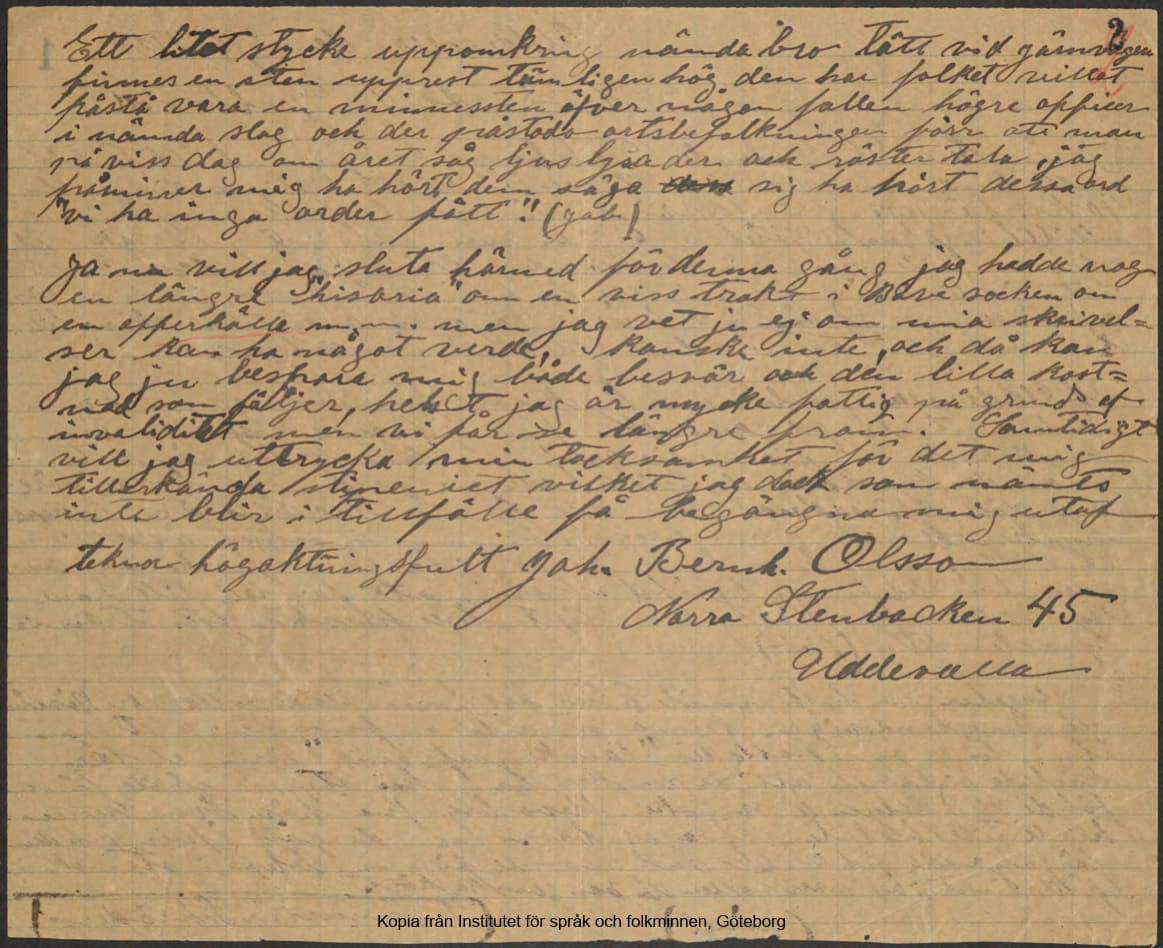 3
Ett litet stycke uppomkring nämda bro tätt vid järnvägen
finnes en sten upprest tämligen hög den har folket velat
påstå vara en minnessten öfver någon fallen högre officer
i nämnda slag och der påstodo ortsbefolkningen förr att man
på viss dag om året såg ljus ljuder och röster tala, jag
påminner mig ha hört dem säga sig ha hört dessa ord
"vi ha inga order fått!" (jab.)
Ja nu vill jag sluta härmed för denna gång jag hadde nog
en längre "historia" om en viss trakt i Bäve socken om
en offerkälle m.m. men jag vet ju ej om mia skrivel=
ser kan ha något verde, kanske inte, och då kan
jag ju bespara mig både besvär och den lilla kost=
nad som följer, helst jag är mycke fattig på grund af
invaliditet men vi får se längre fram. Samtidigt
vill jag uttrycka min tacksamhet för det mig
tillerkända stipeniet vilket jag dock som nämts
inte blir i tillfälle få begängna mig utaf
teknar högaktningsfullt Joh. Bernh. Olsson
Norra Stenbacken 45
Uddevalla
Kopia från Institutet för språk och folkminnen, Göteborg